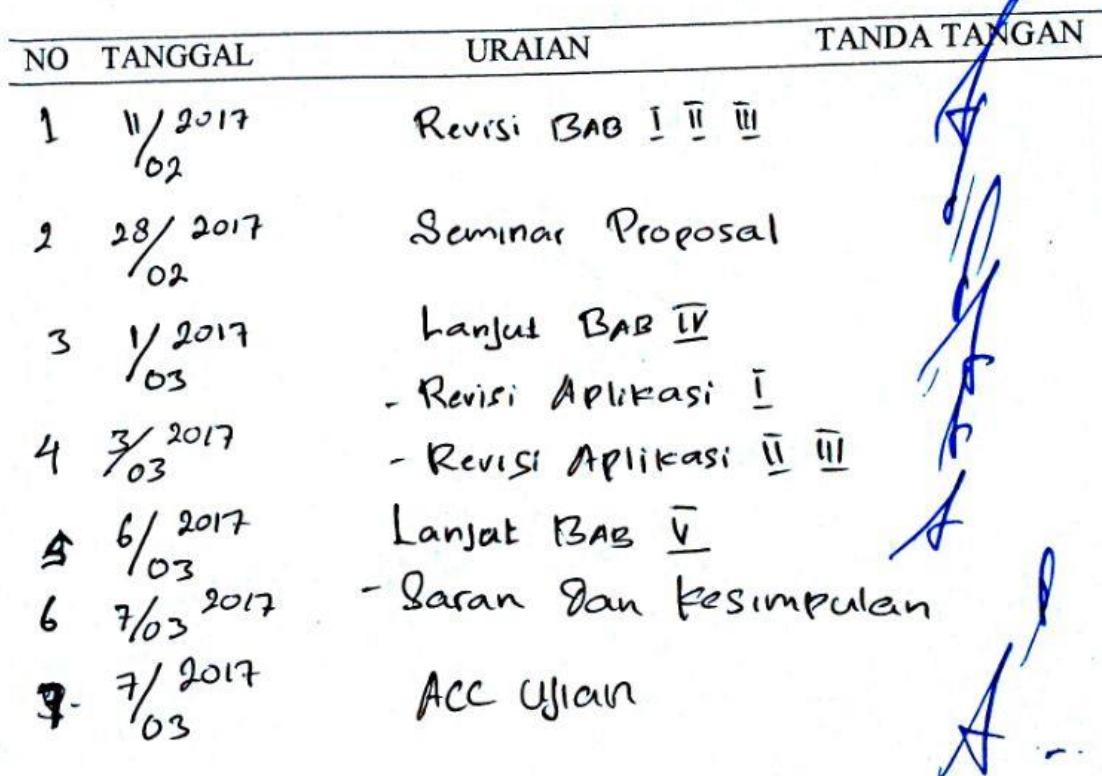 NO TANGGAL URAIAN TANDA TANGAN
1 11/02 2017 Revisi BAB I II III
2 28/02 2017 Seminar Proposal
3 1/03 2017 Lanjut BAB IV
- Revisi Aplikasi I
4 3/03 2017 - Revisi Aplikasi II III
5 6/03 2017 Lanjut BAB V
6 7/03 2017 - Saran dan kesimpulan
7. 7/03 2017 ACC Ujian